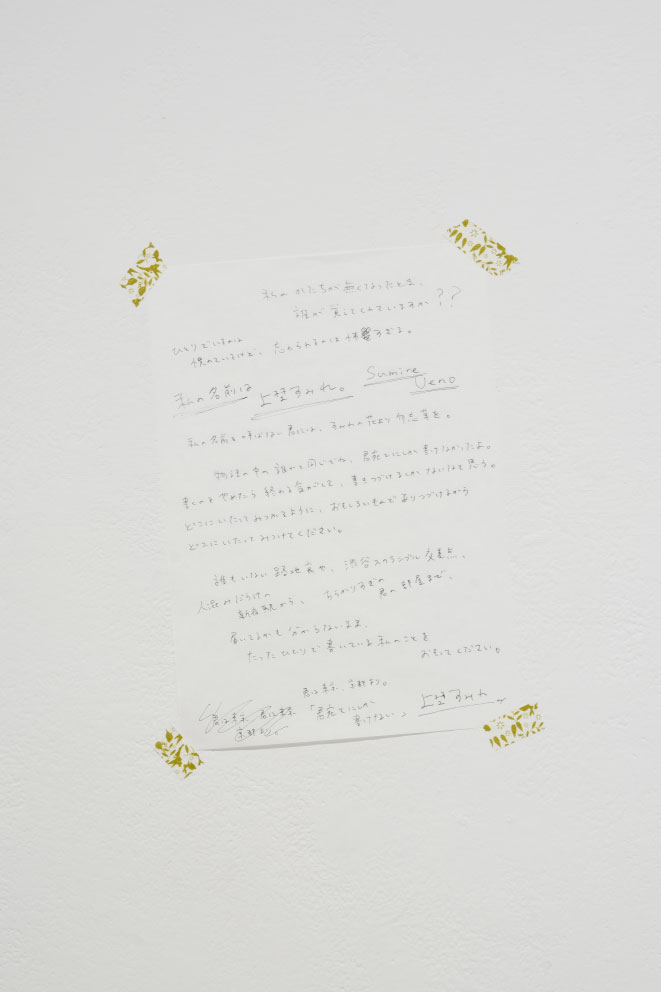 私のかたちが無くなったとき、
誰が覚えてくれていますか??
ひとりでいるのは
慣れているけど、忘れられるのは怖すぎる。
私の名前は 上埜すみれ。 Sumire
Ueno
私の名前を呼ばない君には、すみれの花より勿忘草を。
物語の中の誰かと同じでね、君宛てにしか書けなかったよ。
書くのをやめたら終わる気がして、書きつづけるしかないなって思う。
どこにいたってみつかるように、おもしろいもんでありつづけるから
どこにいたってみつけてください。
誰もいない路地裏や、渋谷スクランブル交差点、
人混みだらけの
新宿駅から、ちらかりすぎの
君の部屋まで、
届いてるかも分からないまま、
たったひとりで書いている私のことを
おもってください。
「君宛てにしか
書けない」 上埜すみれ